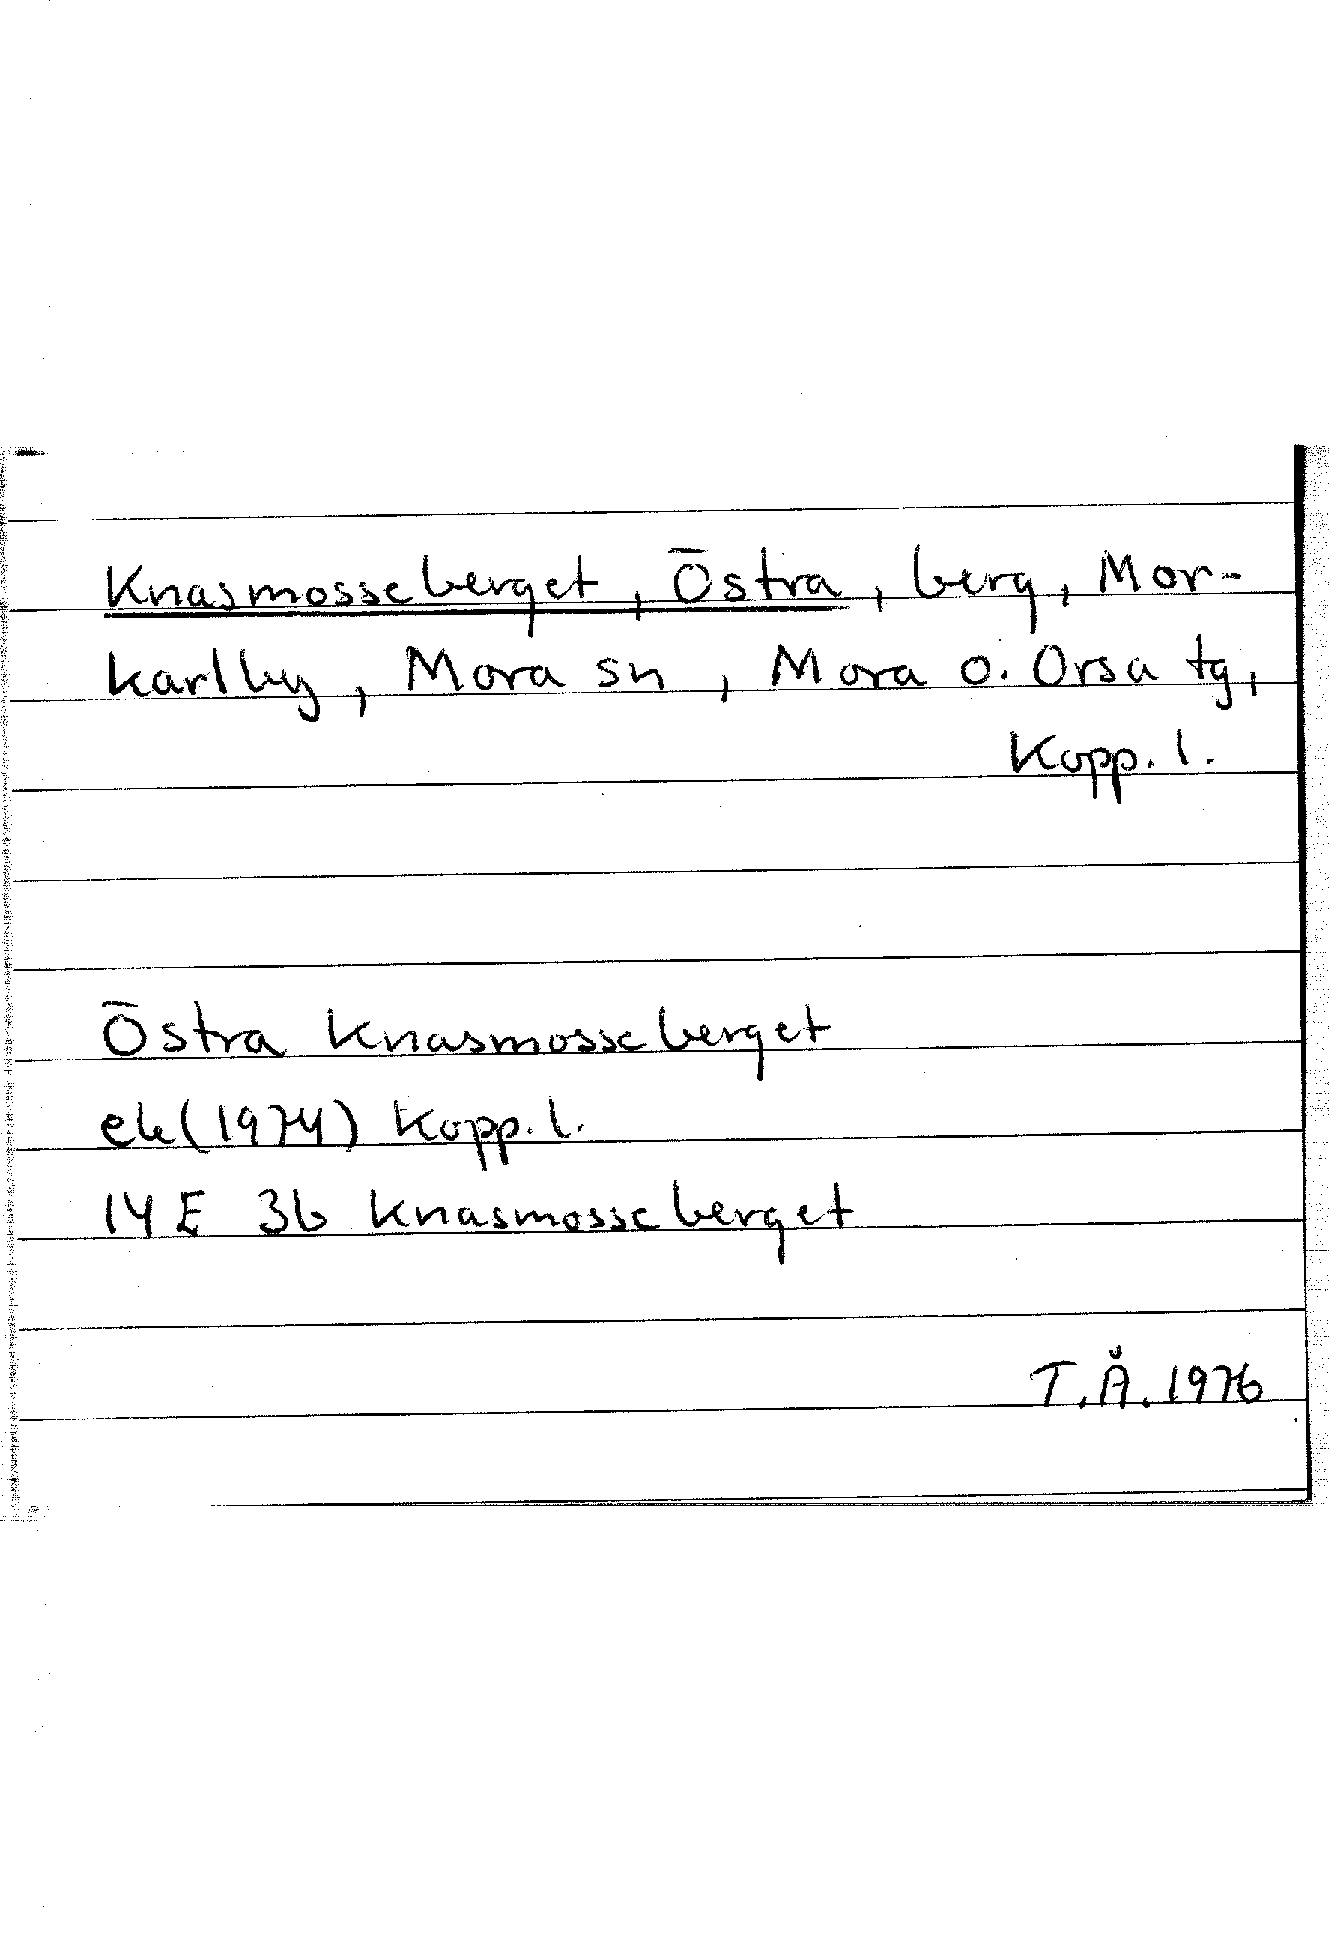 Knasmosseberget, Östra, berg, Mor-
karlby, Mora sn, Mora o. Orsa tg,
Kopp. l.
Östra Knasmosseberget
ek (1974) Kopp. l.
14 E 3b Knasmosseberget
T.Å. 1976